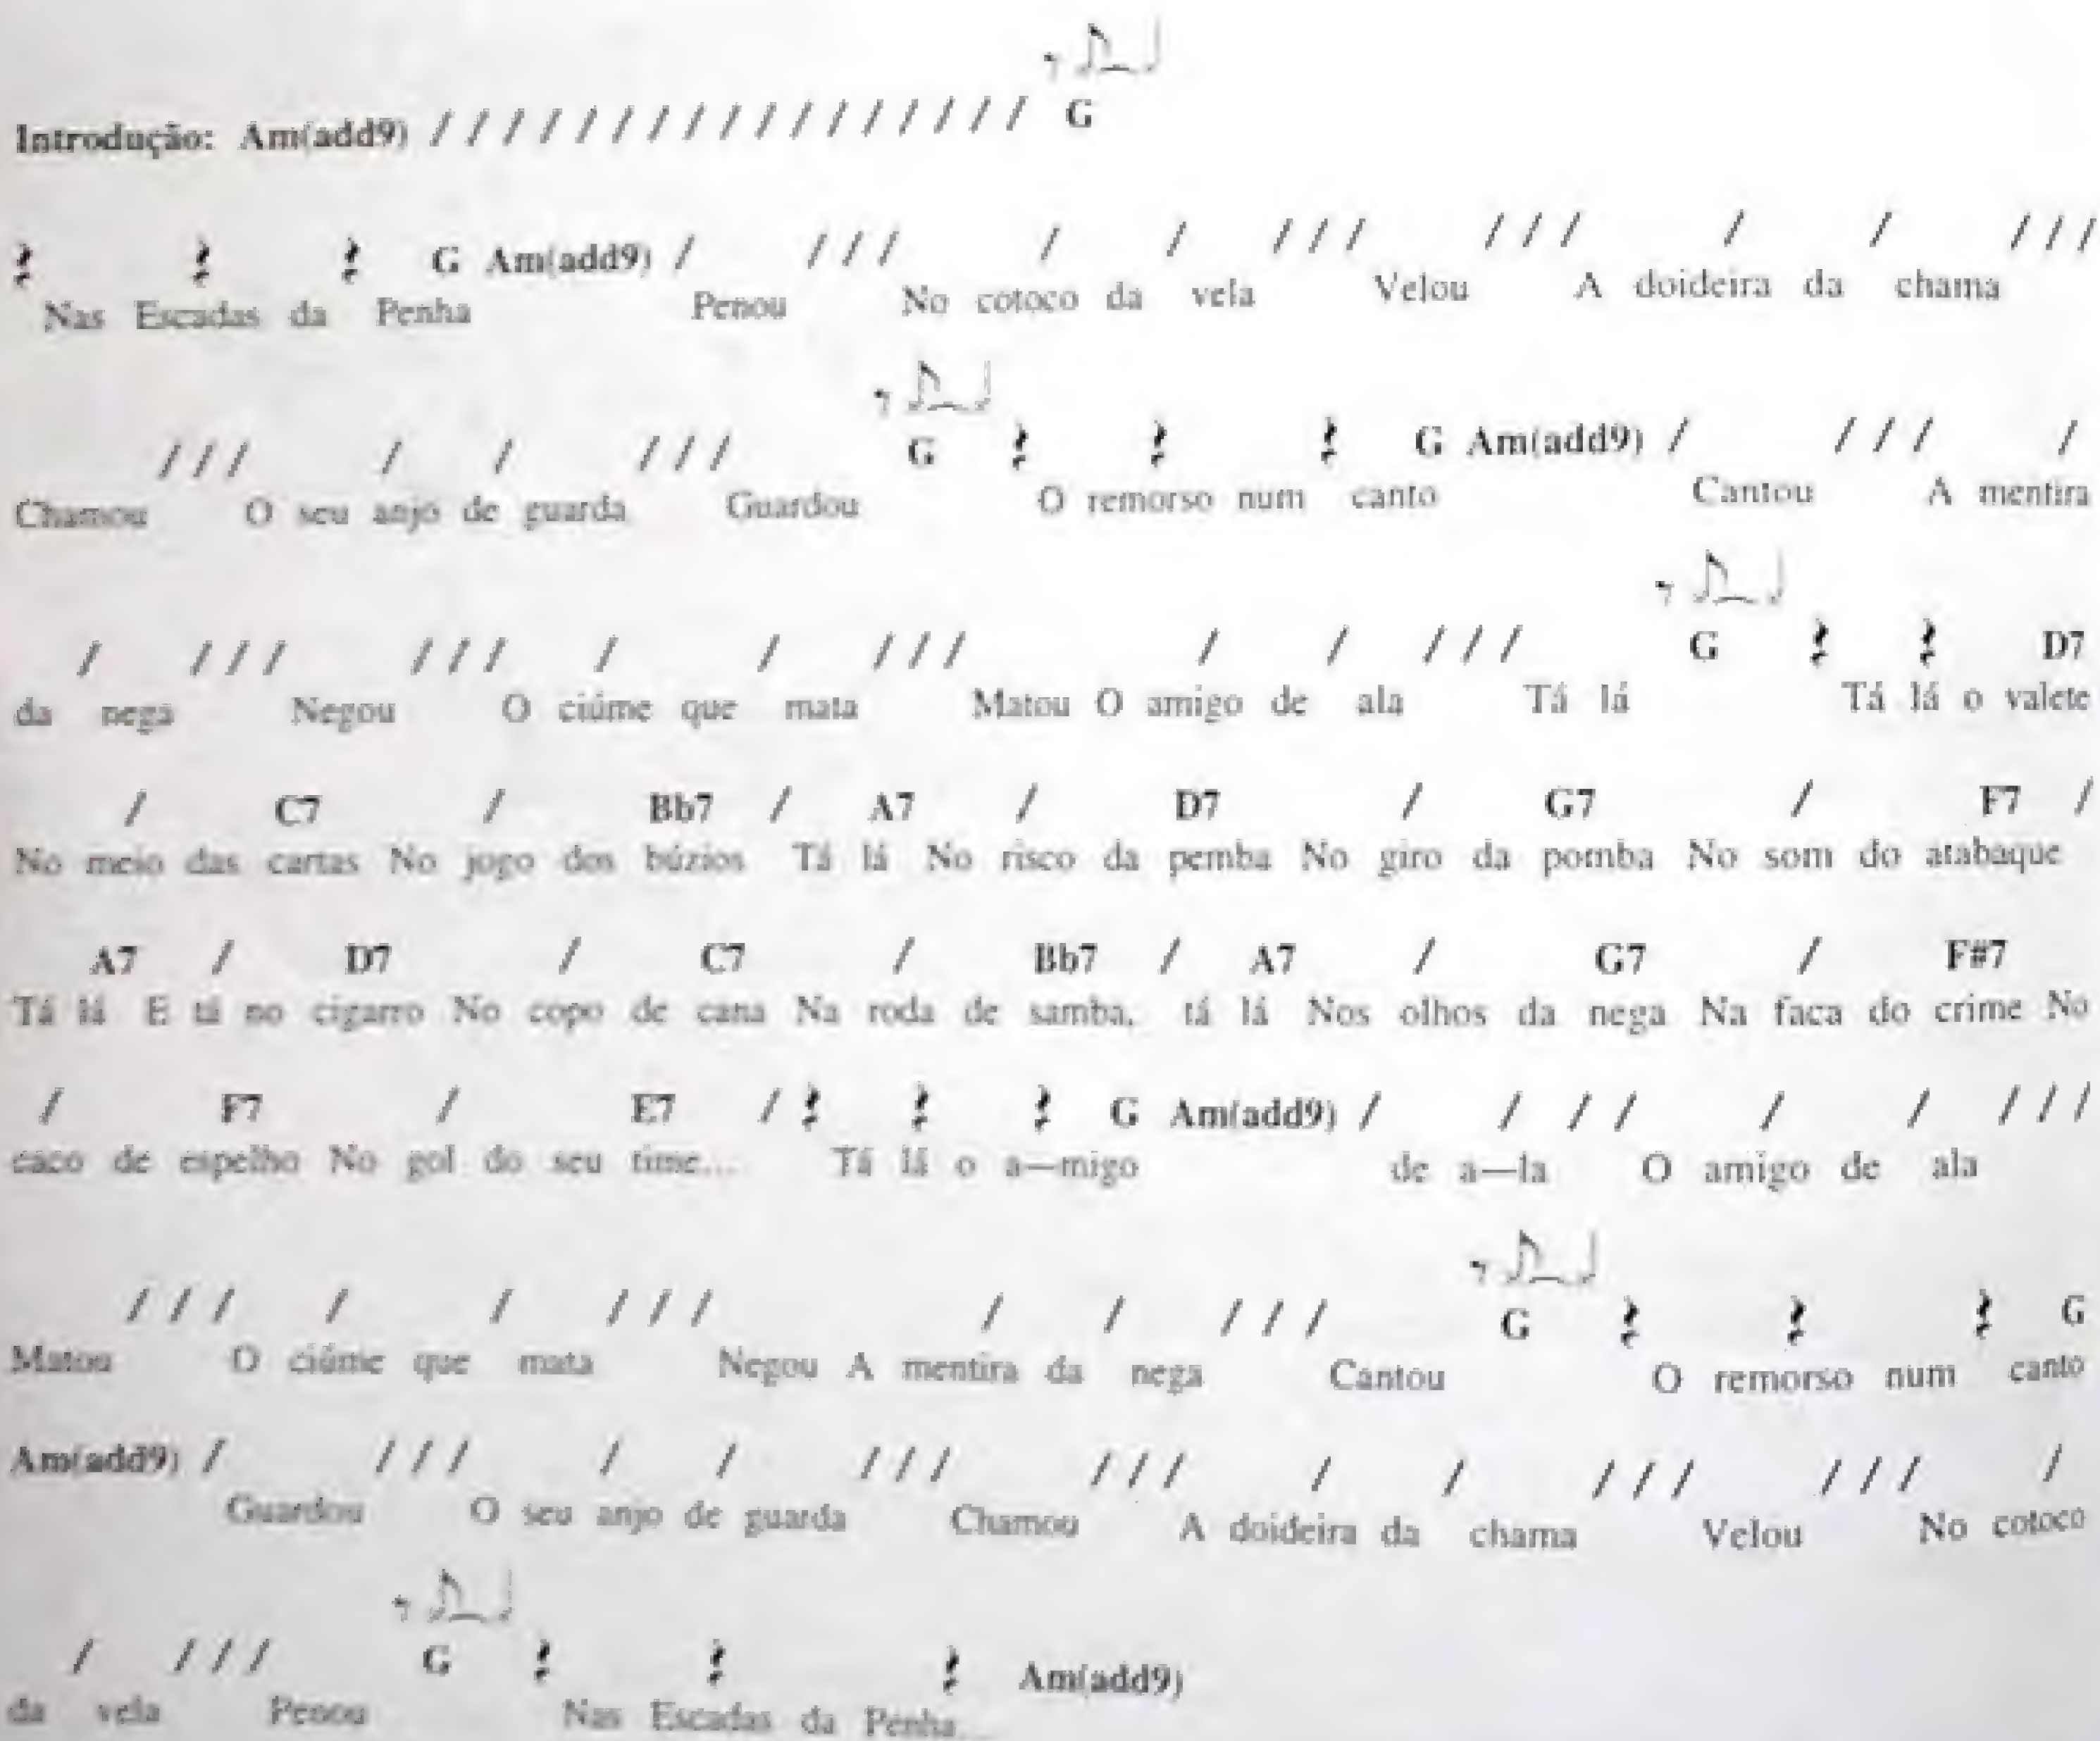 Introdução: Am(add9) / / / / / / / / / / / / / / / / / G
G Am(add9) / / / / / / / / / / / / / / / / /
Nas Escadas da Penha Penou No cotoco da vela Velou A doideira da chama
/ / / / / / / / G G Am(add9) / / / / /
Chamou O seu anjo de guarda Guardou O remorso num canto Cantou A mentira
/ / / / / / / / / / / / / / / / G D7
da nega Negou O ciúme que mata Matou O amigo de ala Tá lá Tá lá o valete
/ C7 / Bb7 / A7 / D7 / G7 / F7 /
No meio das cartas No jogo dos búzios Tá lá No risco da pemba No giro da pomba No som do atabaque
A7 / D7 / C7 / Bb7 / A7 / G7 / F#7
Tá lá E tá no cigarro No copo de cana Na roda de samba, tá lá Nos olhos da nega Na faca do crime No
/ F7 / E7 / G Am(add9) / / / / / / / / /
caco de espelho No gol do seu time... Tá lá o a—migo de a—la O amigo de ala
/ / / / / / / / / / / / / G G
Matou O ciúme que mata Negou A mentira da nega Cantou O remorso num canto
Am(add9) / / / / / / / / / / / / / / / / / / / / /
Guardou O seu anjo de guarda Chamou A doideira da chama Velou No cotoco
/ / / / G Am(add9)
da vela Penou Nas Escadas da Penha...